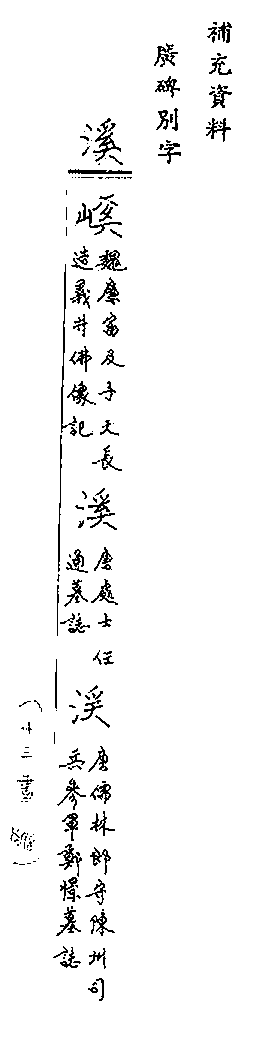 補充資料
廣碑別字
溪
嵠
魏廉富及子天長
造義井佛像記
溪
唐處士任
通墓誌
渓
唐儒林郎守陳州司
兵參軍鄭㦂墓誌
（十三畫